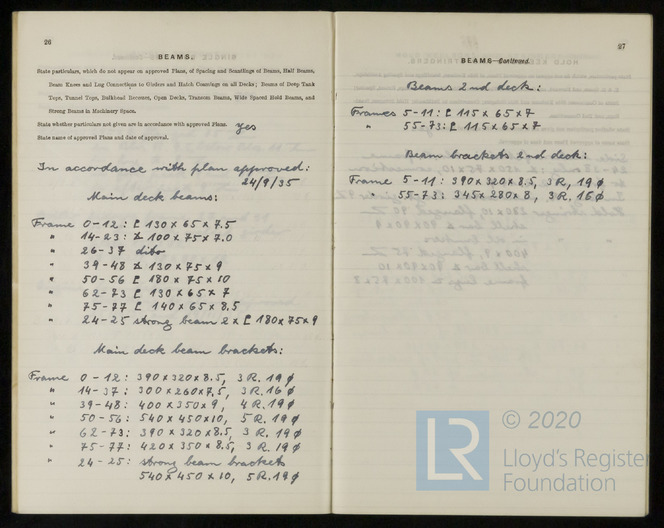 26
BEAMS.
State particulars, which do not appear on approved Plans, of Spacing and Scantlings of Beams, Half Beams,
Beam Knees and Lug Connections to Girders and Hatch Coamings on all Decks; Beams of Deep Tank
Tops, Tunnel Tops, Bulkhead Recesses, Open Decks, Transom Beams, Wide Spaced Hold Beams, and
Strong Beams in Machinery Space.
State whether particulars not given are in accordance with approved Plans. yes
State name of approved Plans and date of approval.
In accordance with plan approved:
24/9/35
Main deck beams:
Frame 0-12: [ 130 x 65 x 7.5
" 14-23: 100 x 75 x 7.0
" 26-37 ditto
" 39-48 130 x 75 x 9
" 50-56 [ 180 x 75 x 10
" 62-73 [ 130 x 65 x 7
" 75-77 [ 140 x 65 x 8,5
" 24-25 strong beam 2 x [ 180 x 75 x 9
Main deck beam brackets:
Frame 0-12: 390 x 320 x 8.5, 3 R. 19 ø
" 14-37: 300 x 260 x 7,5, 3 R. 16 ø
" 39-48: 400 x 350 x 9, 4 R. 19 ø
" 50-56: 540 x 450 x 10, 5 R. 19 ø
" 62-73: 390 x 320 x 8.5, 3 R. 19 ø
" 75-77: 420 x 350 x 8.5, 3 R. 19 ø
" 24-25: strong beam brackets
540 x 450 x 10, 5 R. 19 ø
27
BEAMS Continued.
Beams 2nd deck:
Frames 5-11: [ 115 x 65 x 7
" 55-73: [ 115 x 65 x 7
Beam brackets 2nd deck:
Frame 5-11: 390 x 320 x 8.5, 3 R, 19 ø
" 55-73: 345 x 280 x 8, 3 R. 16 ø
LR
© 2020
Lloyd's Register
Foundation